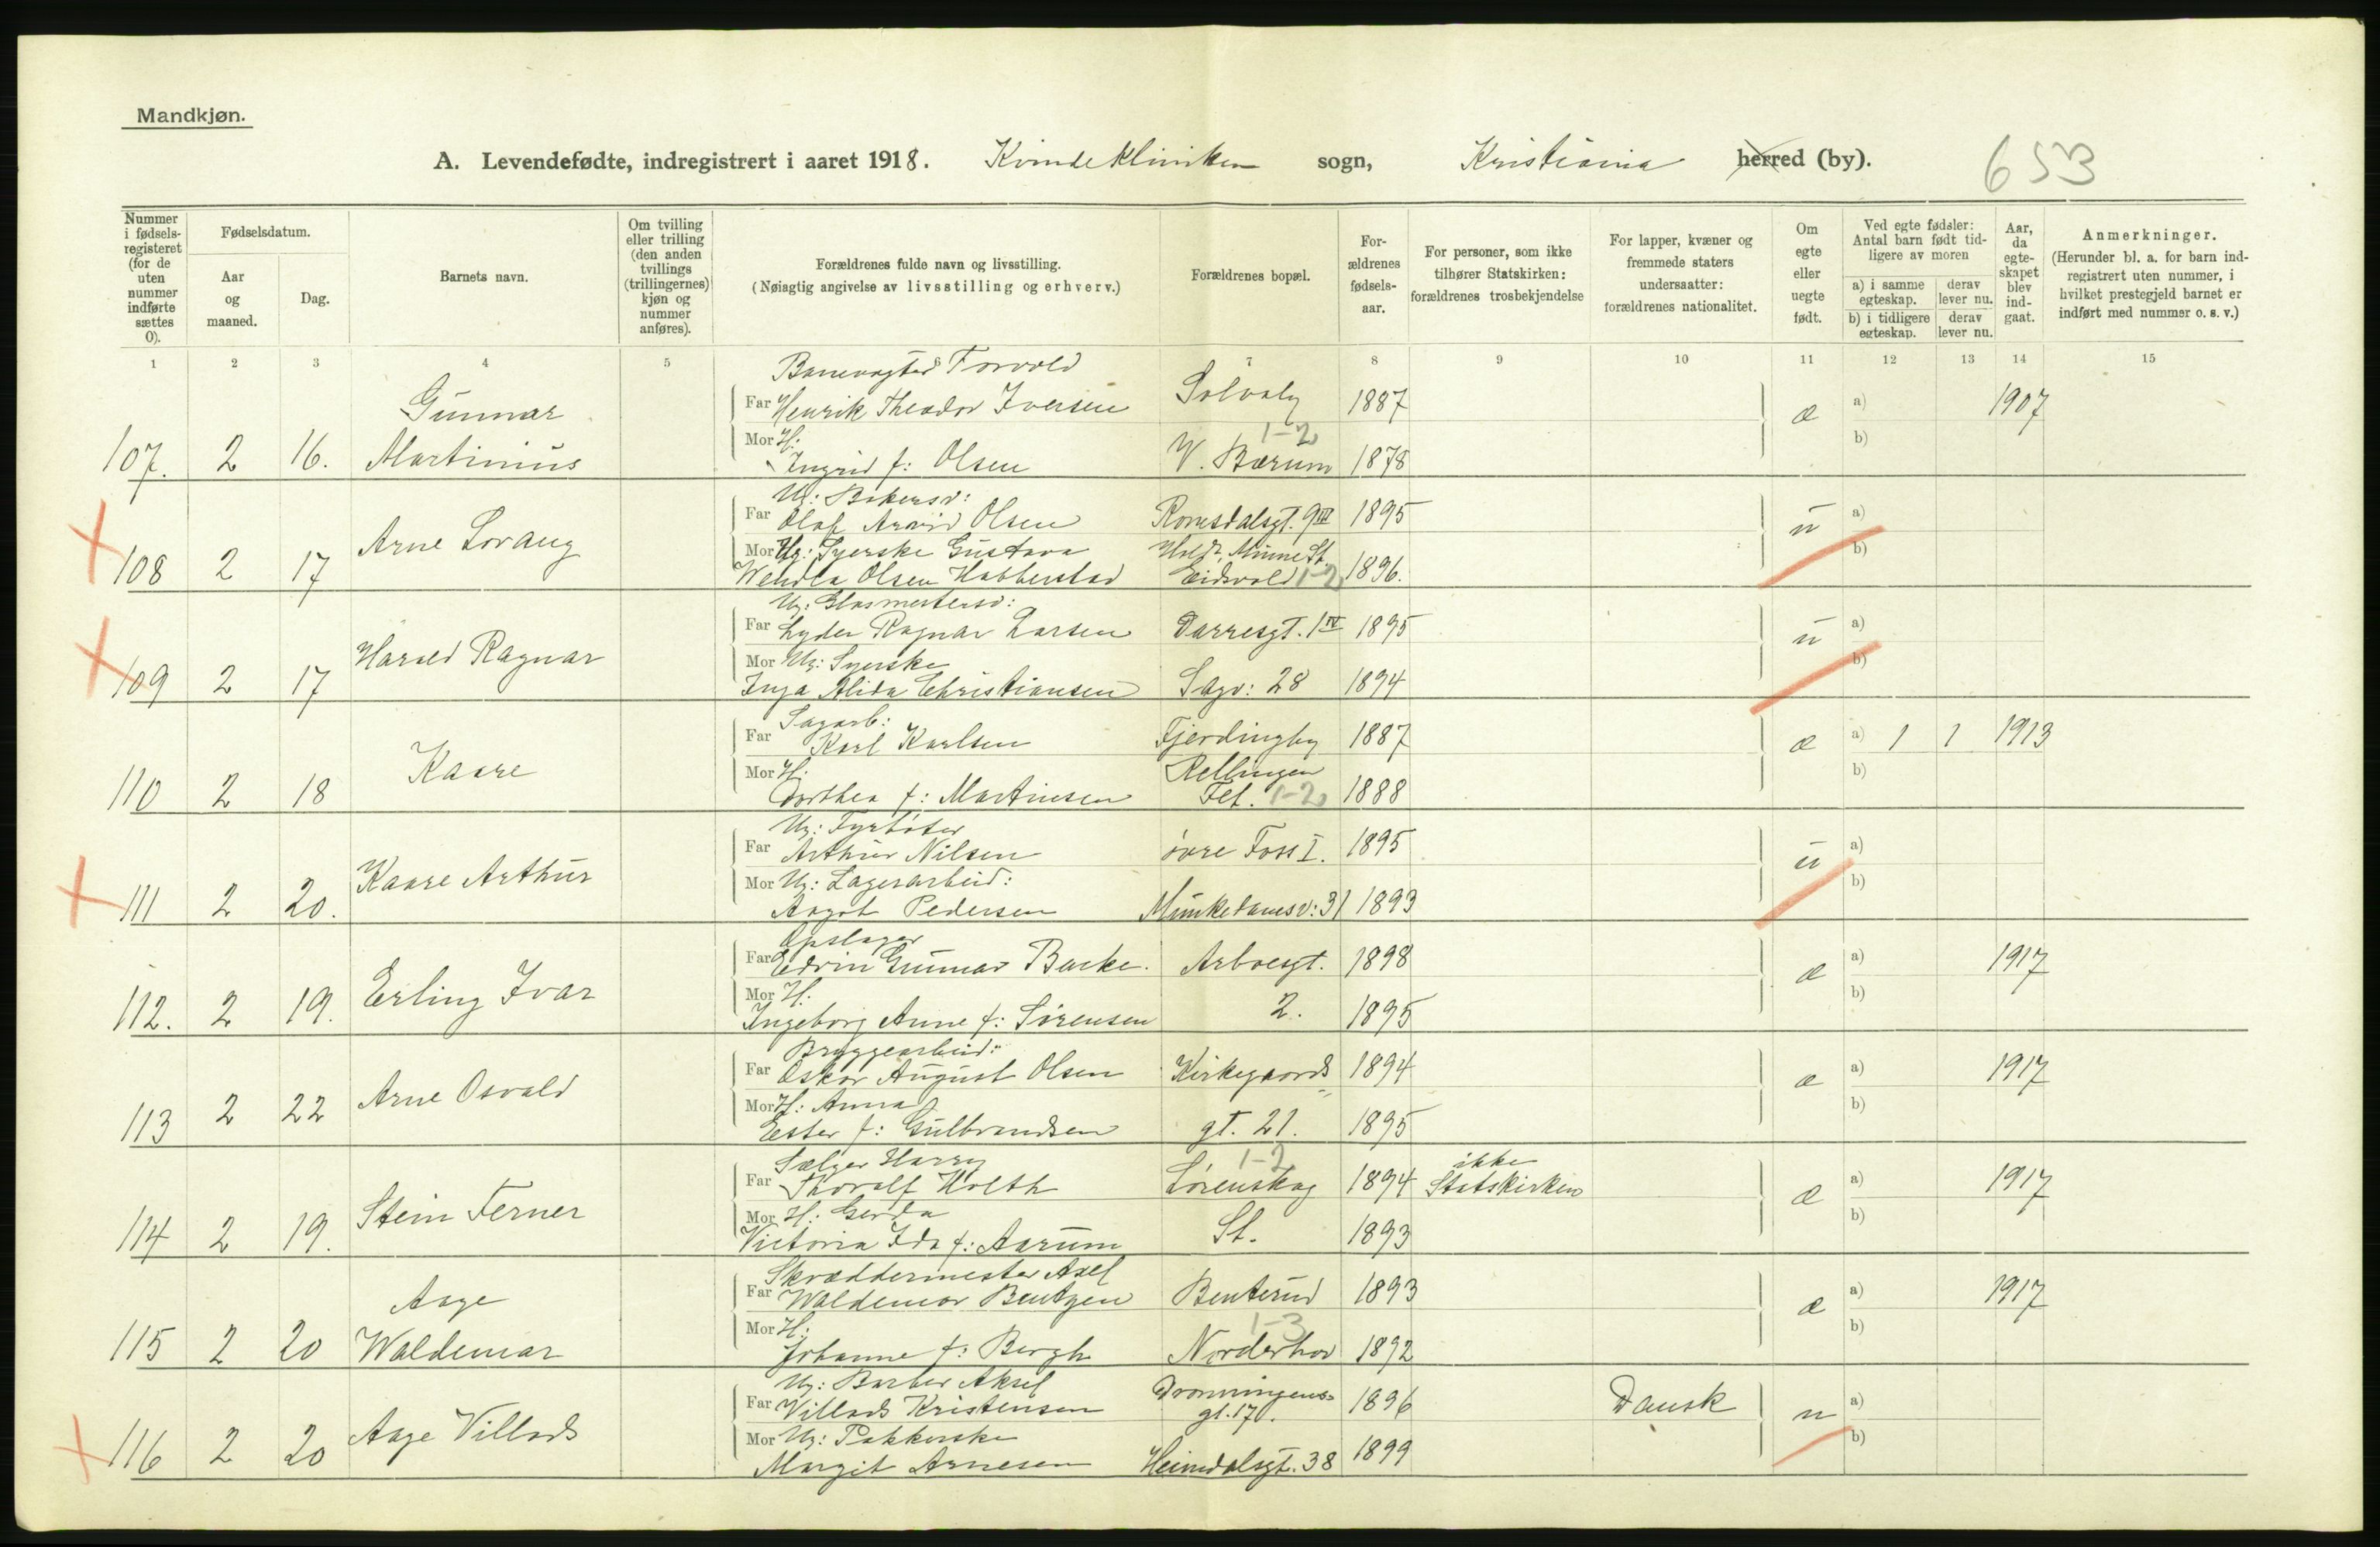 Mandkjøn.
A. Levendefødte, indregistrert i aaret 1918. Kvindeklinikken sogn, Kristiania herred (by). 653
Nummer i fødselsregisteret (for de uten nummer indførte sættes 0).
Fødselsdatum.
Aar og maaned.
Dag.
Barnets navn.
Om tvilling eller trilling (den anden tvillings (trillingernes) kjøn og nummer anføres).
Forældrenes fulde navn og livsstilling.
(Nøiagtig angivelse av livsstilling og erhverv.)
Forældrenes bopæl.
Forældrenes fødselsaar.
For personer, som ikke tilhører Statskirken: forældrenes trosbekjendelse
For lapper, kvæner og fremmede staters undersaatter: forældrenes nationalitet.
Om egte eller uegte født.
Ved egte fødsler: Antal barn født tidligere av moren
a) i samme egteskap. derav lever nu.
b) i tidligere egteskap. derav lever nu.
Aar, da egteskapet blev indgaat.
Anmerkninger.
(Herunder bl. a. for barn indregistrert uten nummer, i hvilket prestegjeld barnet er indført med nummer o. s. v.)
1 2 3 4 5 6 7 8 9 10 11 12 13 14 15
Banevogter Torvald
Gunnar Far Henrik Theodor Iversen Solvaly 1887 æ a) 1907
Mor H: 1-2 b)
107. 2 16. Martinius Ingrid f: Olsen V. Bærum 1878
Ug: Bakersv:
Far Olaf Arvid Olsen Romsdalsgt. 9 III 1895 u a)
Arne Lorang Mor Ug: Syerske Gustava Minne St. b)
108 2 17 Wendla Olsen Habberstad Eidsvold 1-2 1896.
Ug: Glasmestersv:
Far Lyder Ragnar Larsen Darresgt. 1 IV 1895 u a)
Harald Ragnar Mor Ug: Syerske b)
109 2 17 Inga Alida Christiansen Sagv: 28 1894
Sagarb:
Far Karl Karlsen Fjerdingby 1887 æ a) 1 1 1913
Kaare Mor H. Rellingen b)
110 2 18 Dorthea f: Martinsen Fet. 1-2 1888
Ug: Fyrbøter
Far Arthur Nilsen øvre Foss I. 1895 u a)
Kaare Arthur Mor Ug: Lagerarbeid: b)
111 2 20. Aagot Pedersen Munkedamsv: 31 1893
Opslager
Far Edvin Gunnar Backe. Arboesgt. 1898 æ a) 1917
Erling Ivar Mor H. b)
112. 2 19. Ingeborg Anne f: Sørensen 2. 1895
Bryggearbeid:
Far Oskar August Olsen Kirkegaards 1894 æ a) 1917
Arne Osvald Mor H: Anna b)
113 2 22 Ester f: Gulbrandsen gt. 21. 1895
Sælger Harry 1-2 ikke
Far Thoralf Holth Lørenskog 1894 Statskirken æ a) 1917
Stein Ferner Mor H: Gerda b)
114 2 19. Victoria Ida f: Aarum St. 1893
Skræddermester Axel
Aage Far Waldemar Bentzen Benterud 1893 æ a) 1917
Mor H: 1-3 b)
115 2 20 Waldemar Johanne f: Bergh Norderhov 1892
Ug: Barber Aksel Dronningens
Far Villads Kristensen gt. 17. 1896 Dansk u a)
Aage Villads Mor Ug: Pakkerske b)
116 2 20 Margit Arnesen Heimdalsgt. 38 1899